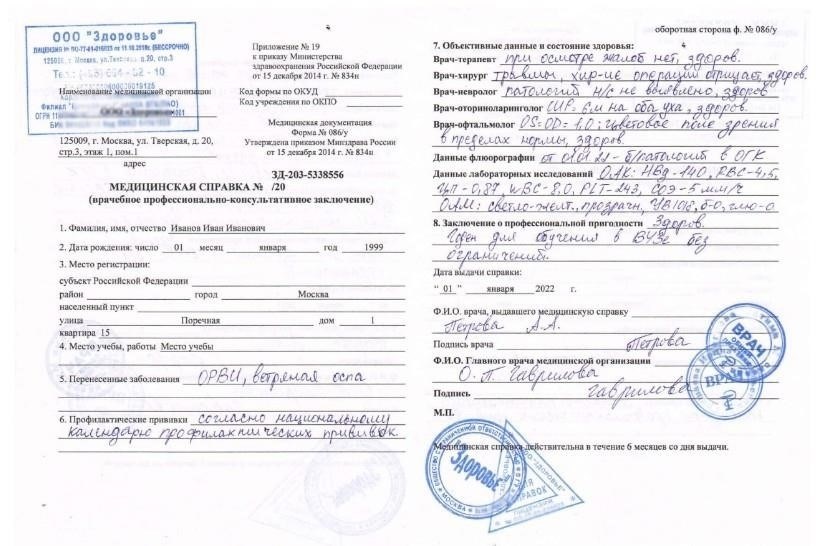 ООО "Здоровье"
ЛИЦЕНЗИЯ № ЛО-77-01-016823 от 11.10.2018г. (БЕССРОЧНО)
125009, г. Москва, ул.Тверская, д.20, стр.3
Наименование медицинской организации
ООО "Здоровье"
125009, г. Москва, ул. Тверская, д. 20,
стр.3, этаж 1, пом.1
адрес
Приложение № 19
к приказу Министерства
здравоохранения Российской Федерации
от 15 декабря 2014 г. № 834н
Код формы по ОКУД
Код учреждения по ОКПО
Медицинская документация
Форма № 086/у
Утверждена приказом Минздрава России
от 15 декабря 2014 г. № 834н
ЗД-203-5338556
МЕДИЦИНСКАЯ СПРАВКА № /20
(врачебное профессионально-консультативное заключение)
1. Фамилия, имя, отчество Иванов Иван Иванович
2. Дата рождения: число 01 месяц января год 1999
3. Место регистрации:
субъект Российской Федерации
район город Москва
населенный пункт
улица Поречная дом 1
квартира 15
4. Место учебы, работы Место учебы
5. Перенесенные заболевания ОРВИ, ветряная оспа
6. Профилактические прививки согласно национальному
календарю профилактических прививок.
оборотная сторона ф. № 086/у
7. Объективные данные и состояние здоровья:
Врач-терапевт при осмотре жалоб нет, здоров.
Врач-хирург травмы, хир-ие операции отрицает, здоров.
Врач-невролог патологий н/с не выявлено, здоров
Врач-оториноларинголог ШР 6 м на оба уха, здоров.
Врач-офтальмолог OS=OD=1,0; цветовое поле зрения
в пределах нормы, здоров.
Данные флюорографии от 01.01.22 - б/патологий в ОГК
Данные лабораторных исследований ОАК: Hbg-140, RBC-4,5,
цп-0,87, WBC-8.0, PLT-243, СОЭ-5 мм/ч
ОАМ: светло-желт., прозрачн, УВ1018, б-0, глю-0
8. Заключение о профессиональной пригодности Здоров.
Годен для обучения в ВУЗе без
ограничений.
Дата выдачи справки:
" 01 " января 2022 г.
Ф.И.О. врача, выдавшего медицинскую справку
Петрова А.А.
Подпись врача Петрова
Ф.И.О. Главного врача медицинской организации
О. П. Гаврилова
Подпись Гаврилова
М.П.
ВРАЧ
ВРАЧ
Медицинская справка действительна в течение 6 месяцев со дня выдачи.
ЗДОРОВЬЕ
МОСКВА
ДЛЯ
СПРАВОК